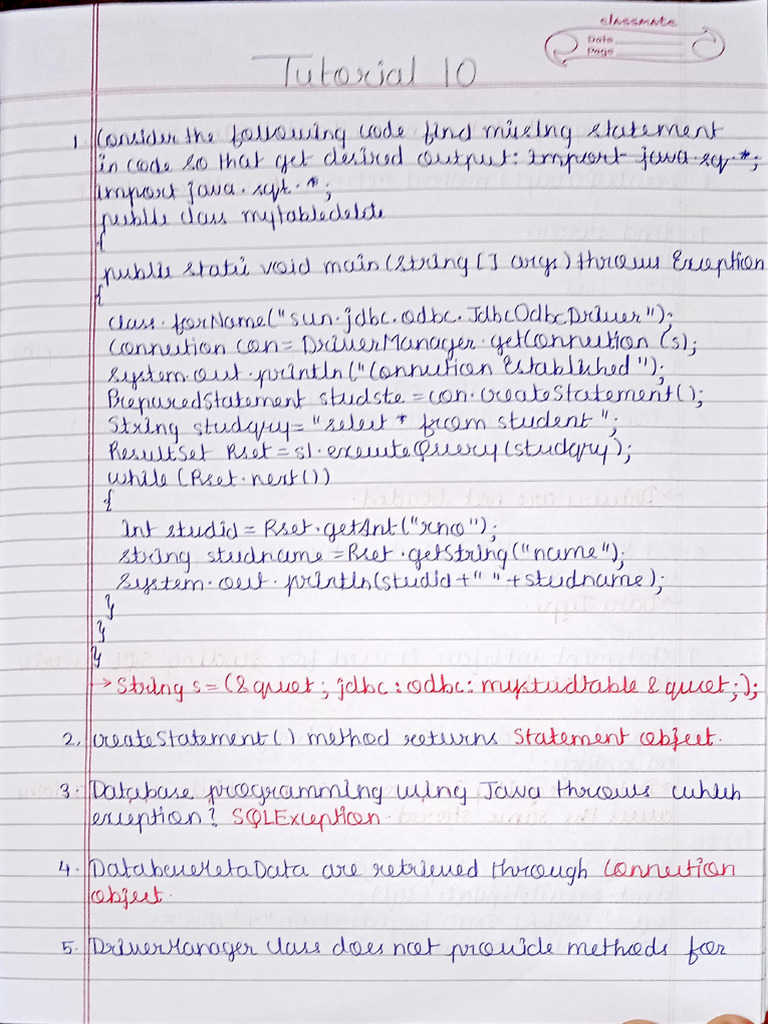 classmate
Date
Page
Tutorial 10
1 Consider the following code find missing statement
in code so that get desired output: import java.sq *;
import java.sql.*;
public class mytabledelete
{
public static void main(String [] args) throws Exception
{
class.forName("sun.jdbc.odbc.JdbcOdbcDriver");
Connection con= DriverManager.getConnection (s);
System.out.println("Connection Established");
PreparedStatement studste = con.createStatement();
String studqry= "select * from student ";
ResultSet Rset = s1.executeQuery(studqry);
while (Rset.next())
{
int studid = Rset.getInt("rno");
string studname = Rset.getString("name");
System.out.println(studid+" "+studname);
}
}
}
→ String s=(&quot; jdbc:odbc:mystudtable &quot;);
2. createStatement() method returns Statement object.
3. Database programming using Java throws which
exception? SQLException.
4. DatabaseMetaData are retrieved through connection
object.
5. DriverManager class does not provide methods for